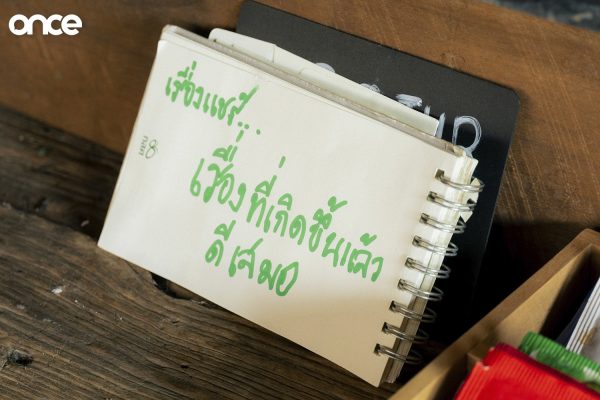 once
เรื่องแชร์...
เรื่องที่เกิดขึ้นแล้ว
ดีเสมอ